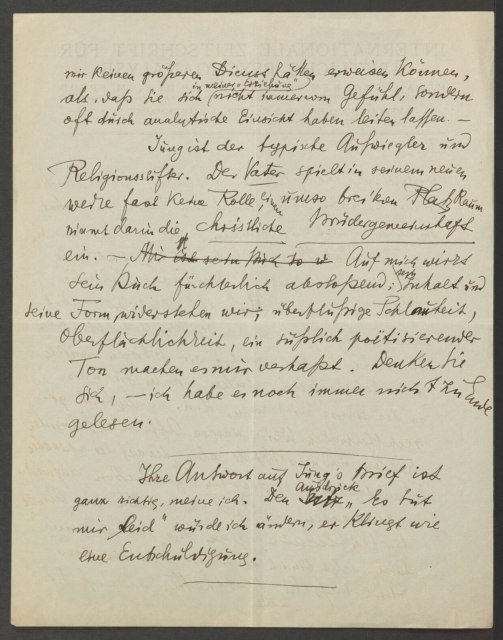 mir keinen größeren Dienst hätten erweisen können,
als daß Sie sich in meiner „Erziehung" nicht immer vom Gefühl, sondern
oft durch analytische Einsicht haben leiten lassen. —
Jung ist der typische Aufwiegler und
Religionsstifter. Der Vater spielt in seinem neuen
Werke fast keine Rolle, einen umso breiteren Platz Raum
nimmt darin die christliche Brüdergemeinschaft
ein. — Mir ist sein Auf mich wirkt
sein Buch fürchterlich abstoßend; sein Inhalt und
seine Form widerstehen mir; überflüßige Schlauheit,
Oberflächlichkeit, ein süßlich poëtisierender
Ton machen es mir verhaßt. Denken Sie
sich, — ich habe es noch immer nicht zu Ende
gelesen.
Ihre Antwort auf Jung's Brief ist
ganz richtig, meine ich. Den Ausdruck „Es tut
mir leid" würde ich ändern, er klingt wie
eine Entschuldigung.